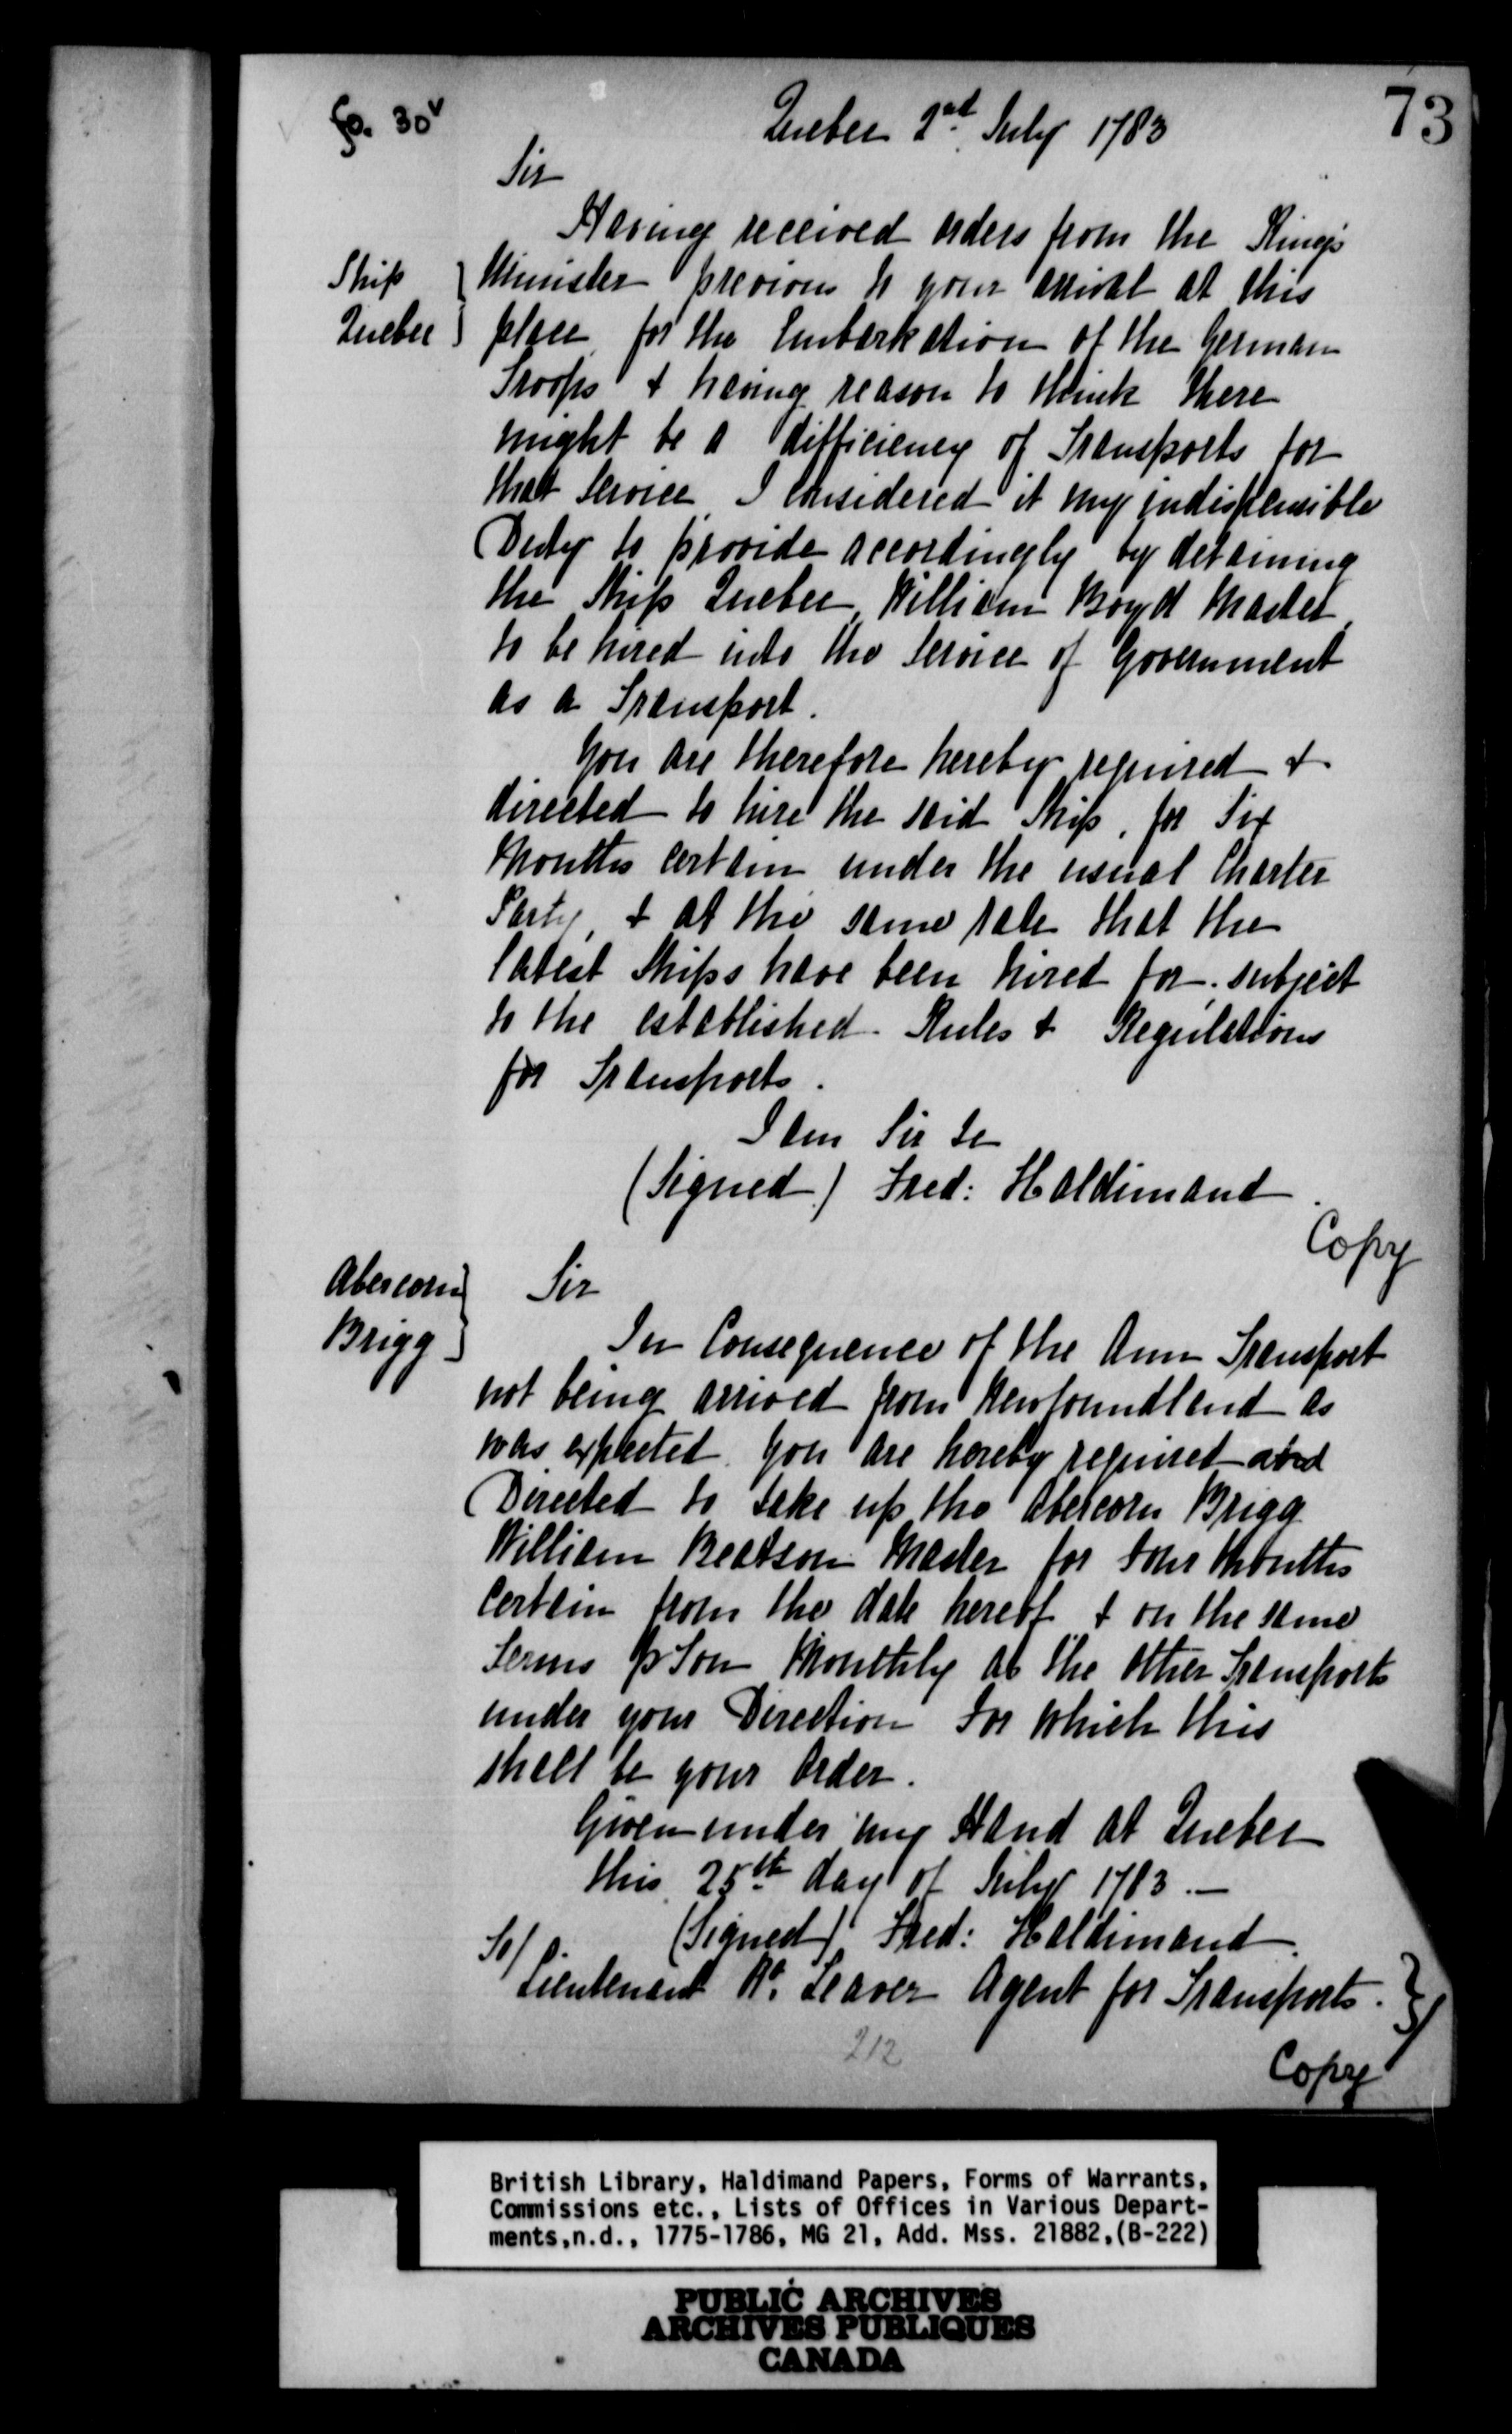 fo. 30v
73
Quebec 2nd July 1783
Sir
Having received orders from the King's
Ship } Minister previous to your arrival at this
Quebec } place for the Embarkation of the German
Troops & having reason to think there
might be a difficiency of Transports for
that Service I considered it my indispensible
Duty to provide accordingly by detaining
the Ship Quebec, William Boyd Master
to be hired into the Service of Government
as a Transport.
You are therefore hereby required &
directed to hire the said Ship, for Six
Months certain under the usual Charter
Party, & at the same rate that the
latest Ships have been hired for. subject
to the established Rules & Regulations
for Transports.
I am Sir &c
(Signed) Fred: Haldimand
Copy
Abercorn } Sir
Brigg }
In Consequence of the Ann Transport
not being arrived from Newfoundland as
was expected you are hereby required and
Directed to take up the Abercorn Brigg
William Beatson Master for four Months
certain from the date hereof & on the same
Terms p Ton Monthly as the other Transports
under your Direction for which this
shall be your Order.
Given under my Hand at Quebec
this 25th day of July 1783.—
(Signed) Fred: Haldimand.
To/
Lieutenant Leaver Agent for Transports. }
212
Copy
British Library, Haldimand Papers, Forms of Warrants,
Commissions etc., Lists of Offices in Various Depart-
ments,n.d., 1775-1786, MG 21, Add. Mss. 21882,(B-222)
PUBLIC ARCHIVES
ARCHIVES PUBLIQUES
CANADA